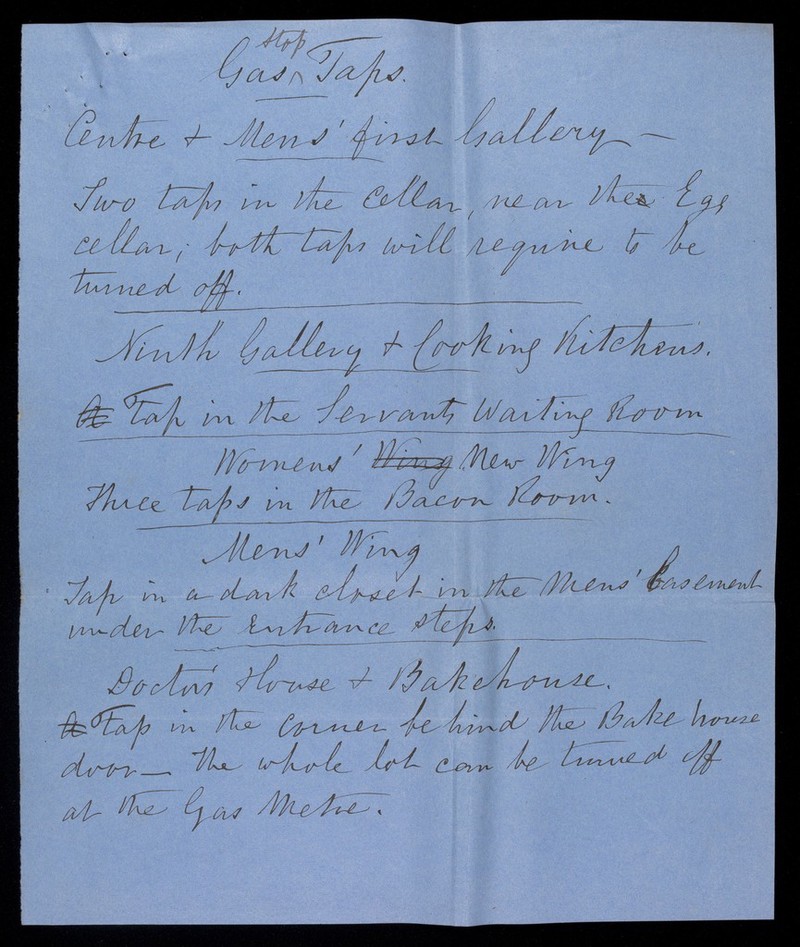 Gas stop Taps.
Centre & Mens' first Gallery —
Two taps in the Cellar, near the Egg
cellar; both taps will require to be
turned off.
Ninth Gallery & Cooking Kitchens.
A Tap in the Servants Waiting Room
Womens' Wing New Wing
Three taps in the Bacon Room.
Mens' Wing
Tap in a dark closet in the Mens' basement
under the Entrance steps.
Doctor's House & Bakehouse.
A Tap in the corner behind the Bake house
door — The whole lot can be turned off
at the Gas Metre.